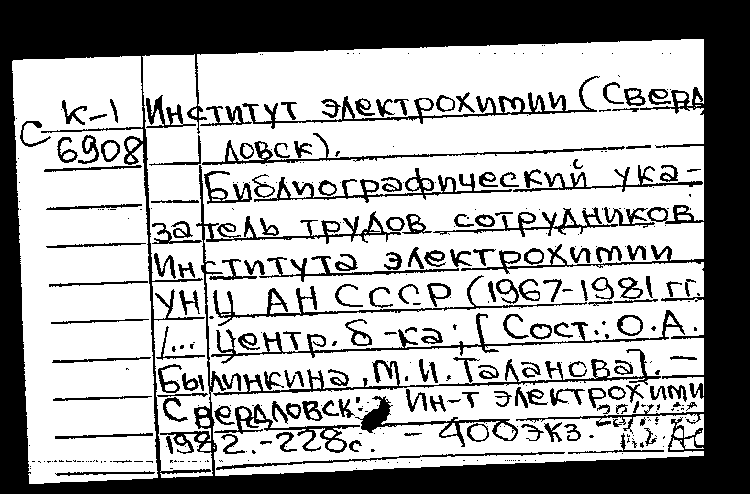 К-1 Институт электрохимии (Сверд
С 6908 ловск).
Библиографический ука-
затель трудов сотрудников
Института электрохимии
УНЦ АН СССР (1967-1981 гг.
/... Центр. б-ка; [Сост.: О.А.
Былинкина, М.И. Таланова]. —
Свердловск: Ин-т электрохими
1982. - 228с. - 400 экз.